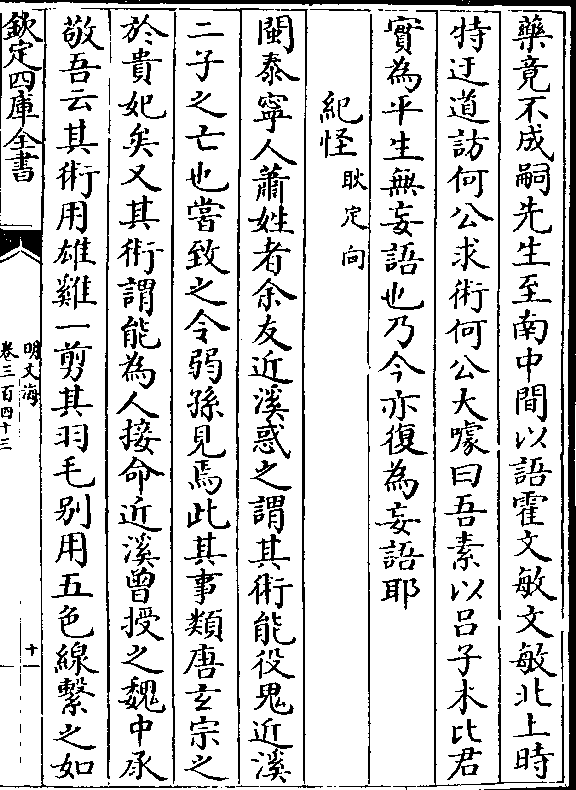 藥竟不成嗣先生至南中間以語霍文敏文敏北上時
特迂道訪何公求術何公大噱曰吾素以吕子木比君
實為平生無妄語也乃今亦復為妄語耶
紀怪 耿定向
閩泰寧人蕭姓者余友近溪惑之謂其術能役鬼近溪
二子之亡也嘗致之令弱孫見焉此其事類唐玄宗之
於貴妃矣又其術謂能為人接命近溪曽授之魏中丞
敬吾云其術用雄雞一剪其羽毛别用五色線繫之如
欽定四庫全書
明文海
卷三百四十三
十